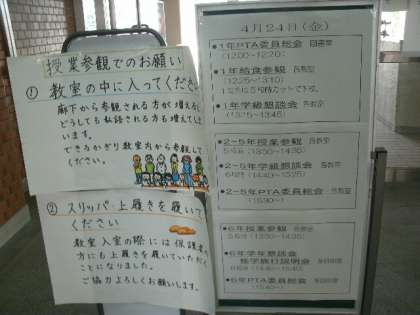 授業参観でのお願い
① 教室の中に入ってください
廊下から参観される方が増えると
どうしても私語される方も増えてしま
います。
できるかぎり教室内から参観して
ください。
② スリッパ・上履きを履いて
ください
教室入室の際には保護者の
方にも上履きを履いていただく
ことになりました。
ご協力よろしくお願いします。
4月24日(金)
●1年PTA委員総会 図書室
(12:00~12:20)
●1年給食参観 各教室
●1年学級懇談会 各教室
(13:15~13:45)
●2~5年授業参観 各教室
5校時 (13:50~14:35)
●2~5年学級懇談会 各教室
6校時 (14:40~15:25)
●2~5年PTA委員総会 各教室
(15:30~)
●6年授業参観 各教室
5校時 (13:50~14:35)
●6年学年懇談会
修学旅行説明会
●6年PTA委員総会
(15:40~)